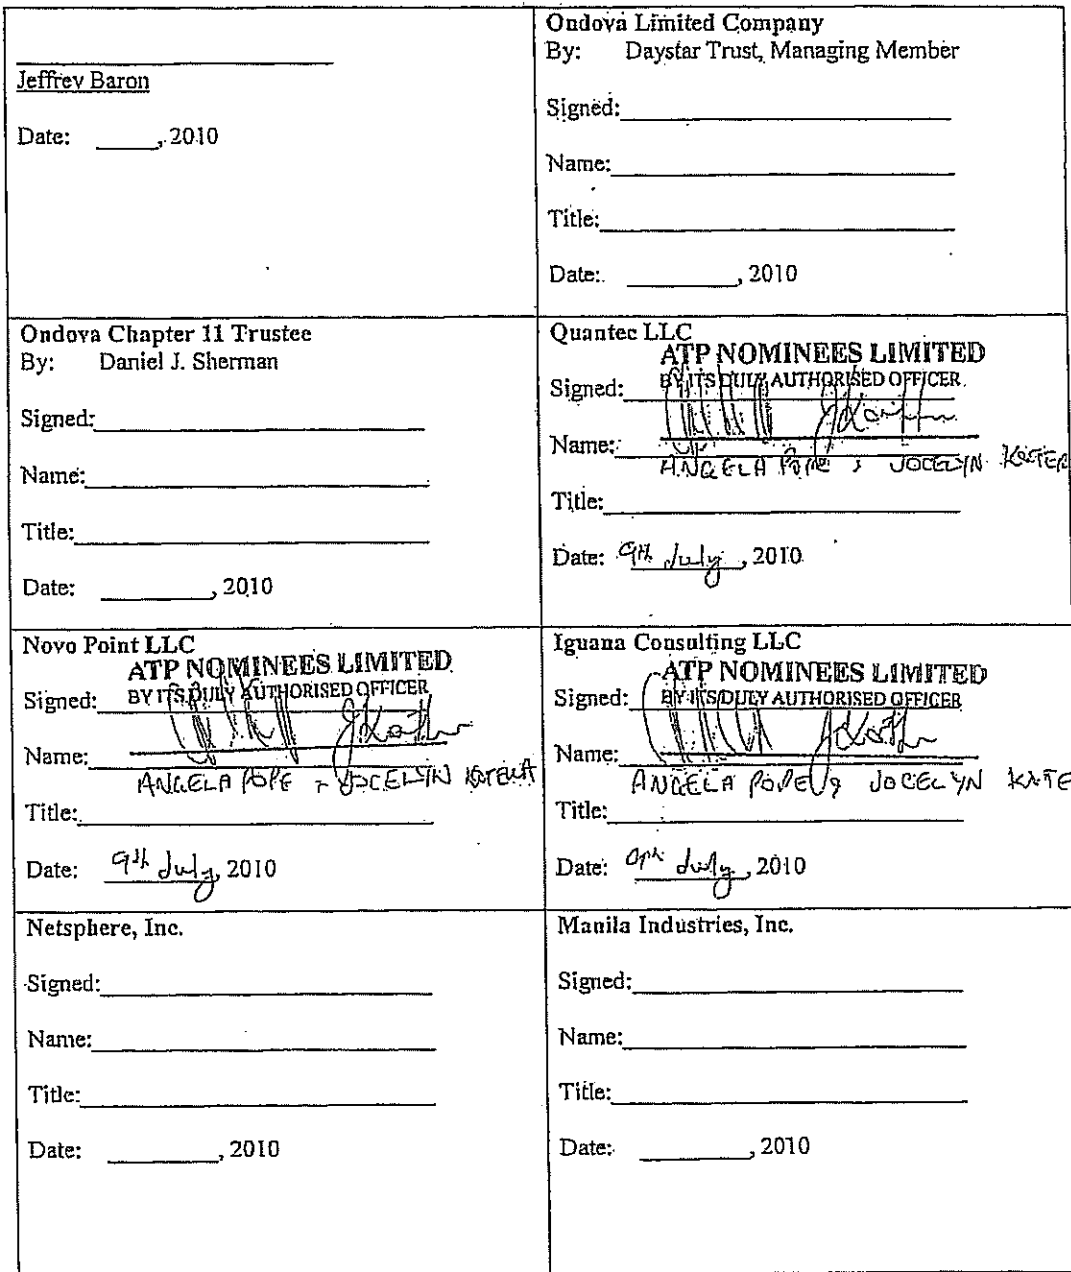 Jeffrey Baron
Date: , 2010
Ondova Limited Company
By: Daystar Trust, Managing Member
Signed:
Name:
Title:
Date: , 2010
Ondova Chapter 11 Trustee
By: Daniel J. Sherman
Signed:
Name:
Title:
Date: , 2010
Quantec LLC
ATP NOMINEES LIMITED
BY ITS DULY AUTHORISED OFFICER
Signed:
Name:
ANGELA POPE & JOCELYN
Title:
Date: 9th July, 2010
Novo Point LLC
ATP NOMINEES LIMITED
BY ITS DULY AUTHORISED OFFICER
Signed:
Name:
ANGELA POPE & JOCELYN
Title:
Date: 9th July, 2010
Iguana Consulting LLC
ATP NOMINEES LIMITED
BY ITS DULY AUTHORISED OFFICER
Signed:
Name:
ANGELA POPE & JOCELYN
Title:
Date: 9th July, 2010
Netsphere, Inc.
Signed:
Name:
Title:
Date: , 2010
Manila Industries, Inc.
Signed:
Name:
Title:
Date: , 2010